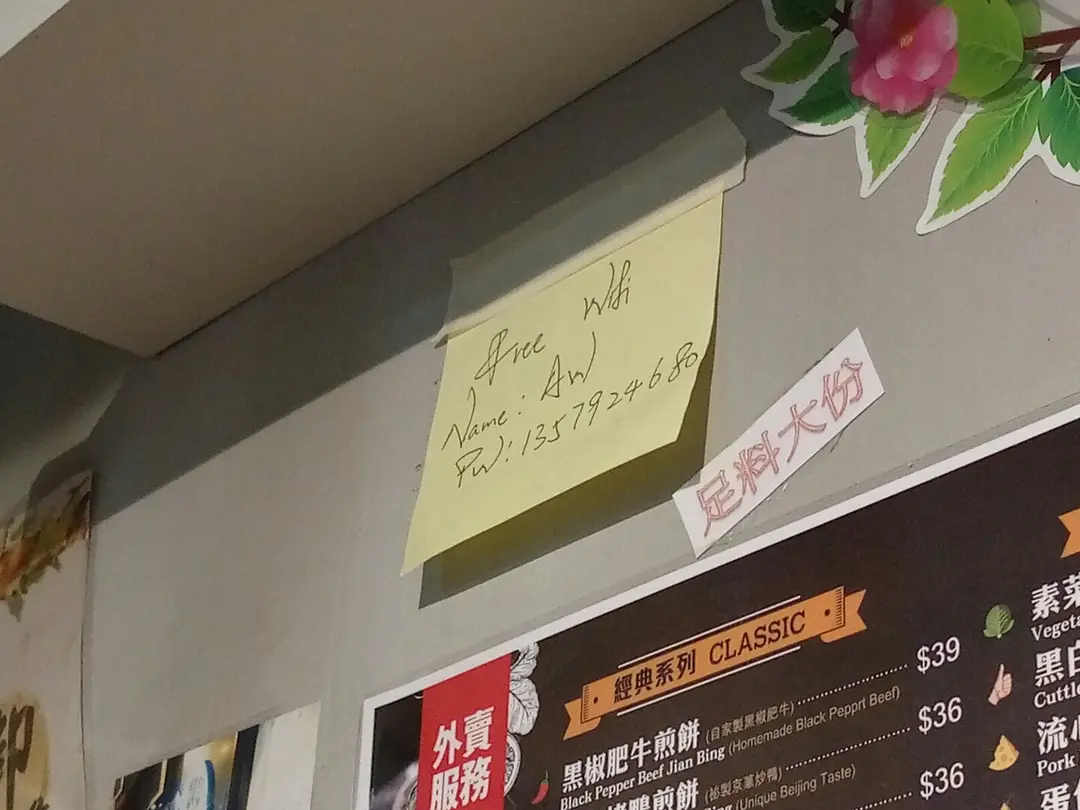 Free Wifi
Name: AW
PW: 1357924680
足料大份
經典系列 CLASSIC
外賣
服務
黑椒肥牛煎餅 (自家製黑椒肥牛) $39
Black Pepper Beef Jian Bing (Homemade Black Pepprt Beef)
鴨煎餅 (祕製京蔥炒鴨) $36
(Unique Beijing Taste) $36
素菜
Vegeta
黑白
Cuttle
流心
Pork